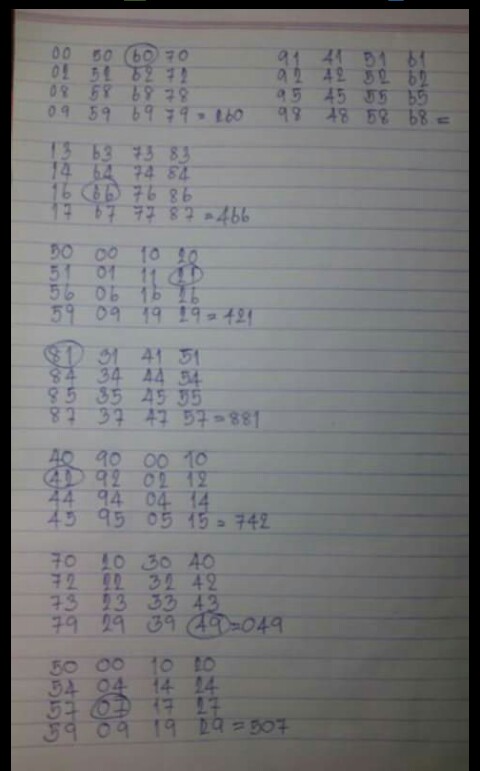 00 50 60 70
02 52 62 72
08 58 68 78
09 59 69 79 = 260
13 63 73 83
14 64 74 84
16 66 76 86
17 67 77 87 = 466
50 00 10 20
51 01 11 21
56 06 16 26
59 09 19 29 = 421
81 31 41 51
84 34 44 54
85 35 45 55
87 37 47 57 = 881
40 90 00 10
42 92 02 12
44 94 04 14
45 95 05 15 = 742
70 20 30 40
72 22 32 42
73 23 33 43
79 29 39 49 = 049
50 00 10 20
54 04 14 24
57 07 17 27
59 09 19 29 = 507
91 41 51 61
92 42 52 62
95 45 55 65
98 48 58 68 =